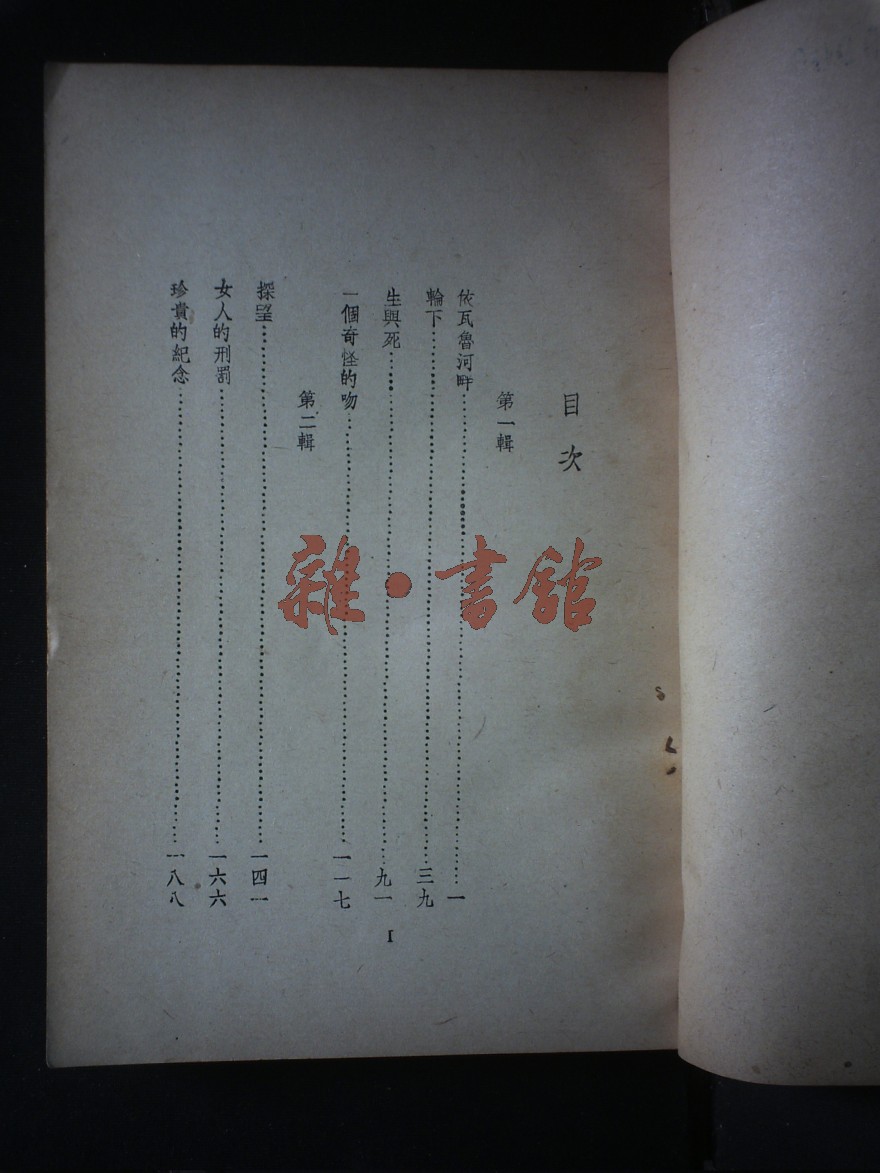 目次
第一輯
依瓦魯河畔……一
輪下……三九
生與死……九一
一個奇怪的吻……一一七
第二輯
探望……一四一
女人的刑罰……一六六
珍貴的紀念……一八八
I
雜·書館